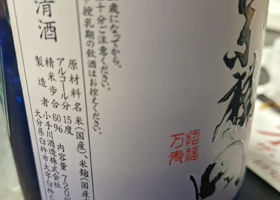 招福
万寿
歳になってから。
十分ご注意ください。
授乳期の飲酒はお控えください。
清酒
原材料名 米(国産)、米麹(国産
アルコール分 15度
精米歩合 60% 内容量 720
製造者 小手川酒造株式会社
大分県臼杵市大字臼杵